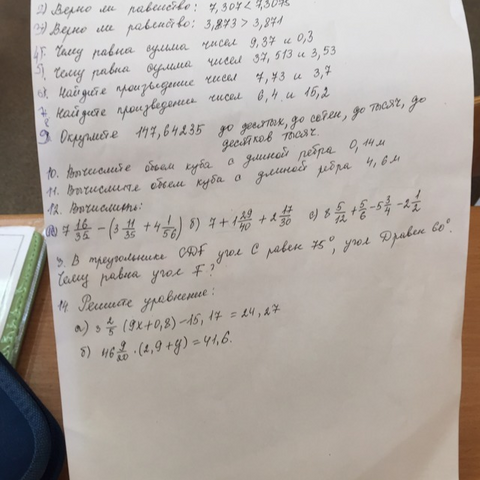 2) Верно ли равенство: 7,307 < 7,3075
3) Верно ли равенство: 3,873 > 3,871
4) Чему равна сумма чисел 9,37 и 0,3
5) Чему равна сумма чисел 37,513 и 3,53
6) Найдите произведение чисел 7,73 и 3,7
7) Найдите произведение чисел 6,4 и 15,2
9) Округлите 147,64235 до десятых, до сотен, до тысяч, до
десятков тысяч.
10. Вычислите объем куба а длиной ребра 0,14м
11. Вычислите объем куба а длиной ребра 4,6м
12. Вычислить:
а) 7 16/35 - (3 11/35 + 4 1/56) б) 7 + 1 29/40 + 2 17/30 с) 8 5/12 + 5/6 - 5 3/4 - 2 1/2
3. В треугольнике CDF угол C равен 75°, угол D равен 60°.
Чему равна угол F?
14 Решите уравнение:
а) 3 2/5 (9x+0,8) - 15,17 = 24,27
б) 46 9/20 · (2,9+y) = 41,6.